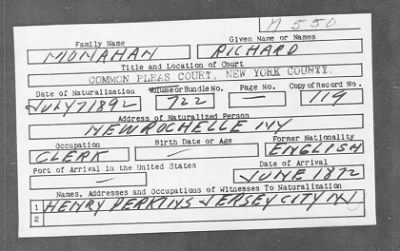 M 550
Family Name Given Name or Names
MONAHAN RICHARD
Title and Location of Court
COMMON PLEAS COURT, NEW YORK COUNTY.
Date of Naturalization Volume or Bundle No. Page No. Copy of Record No.
JULY 7 1892 722 — 119
Address of Naturalized Person
NEW ROCHELLE NY
Occupation Birth Date or Age Former Nationality
CLERK — ENGLISH
Port of Arrival in the United States Date of Arrival
— JUNE 1872
Names, Addresses and Occupations of Witnesses To Naturalization
1 HENRY PERKINS JERSEY CITY NJ
2